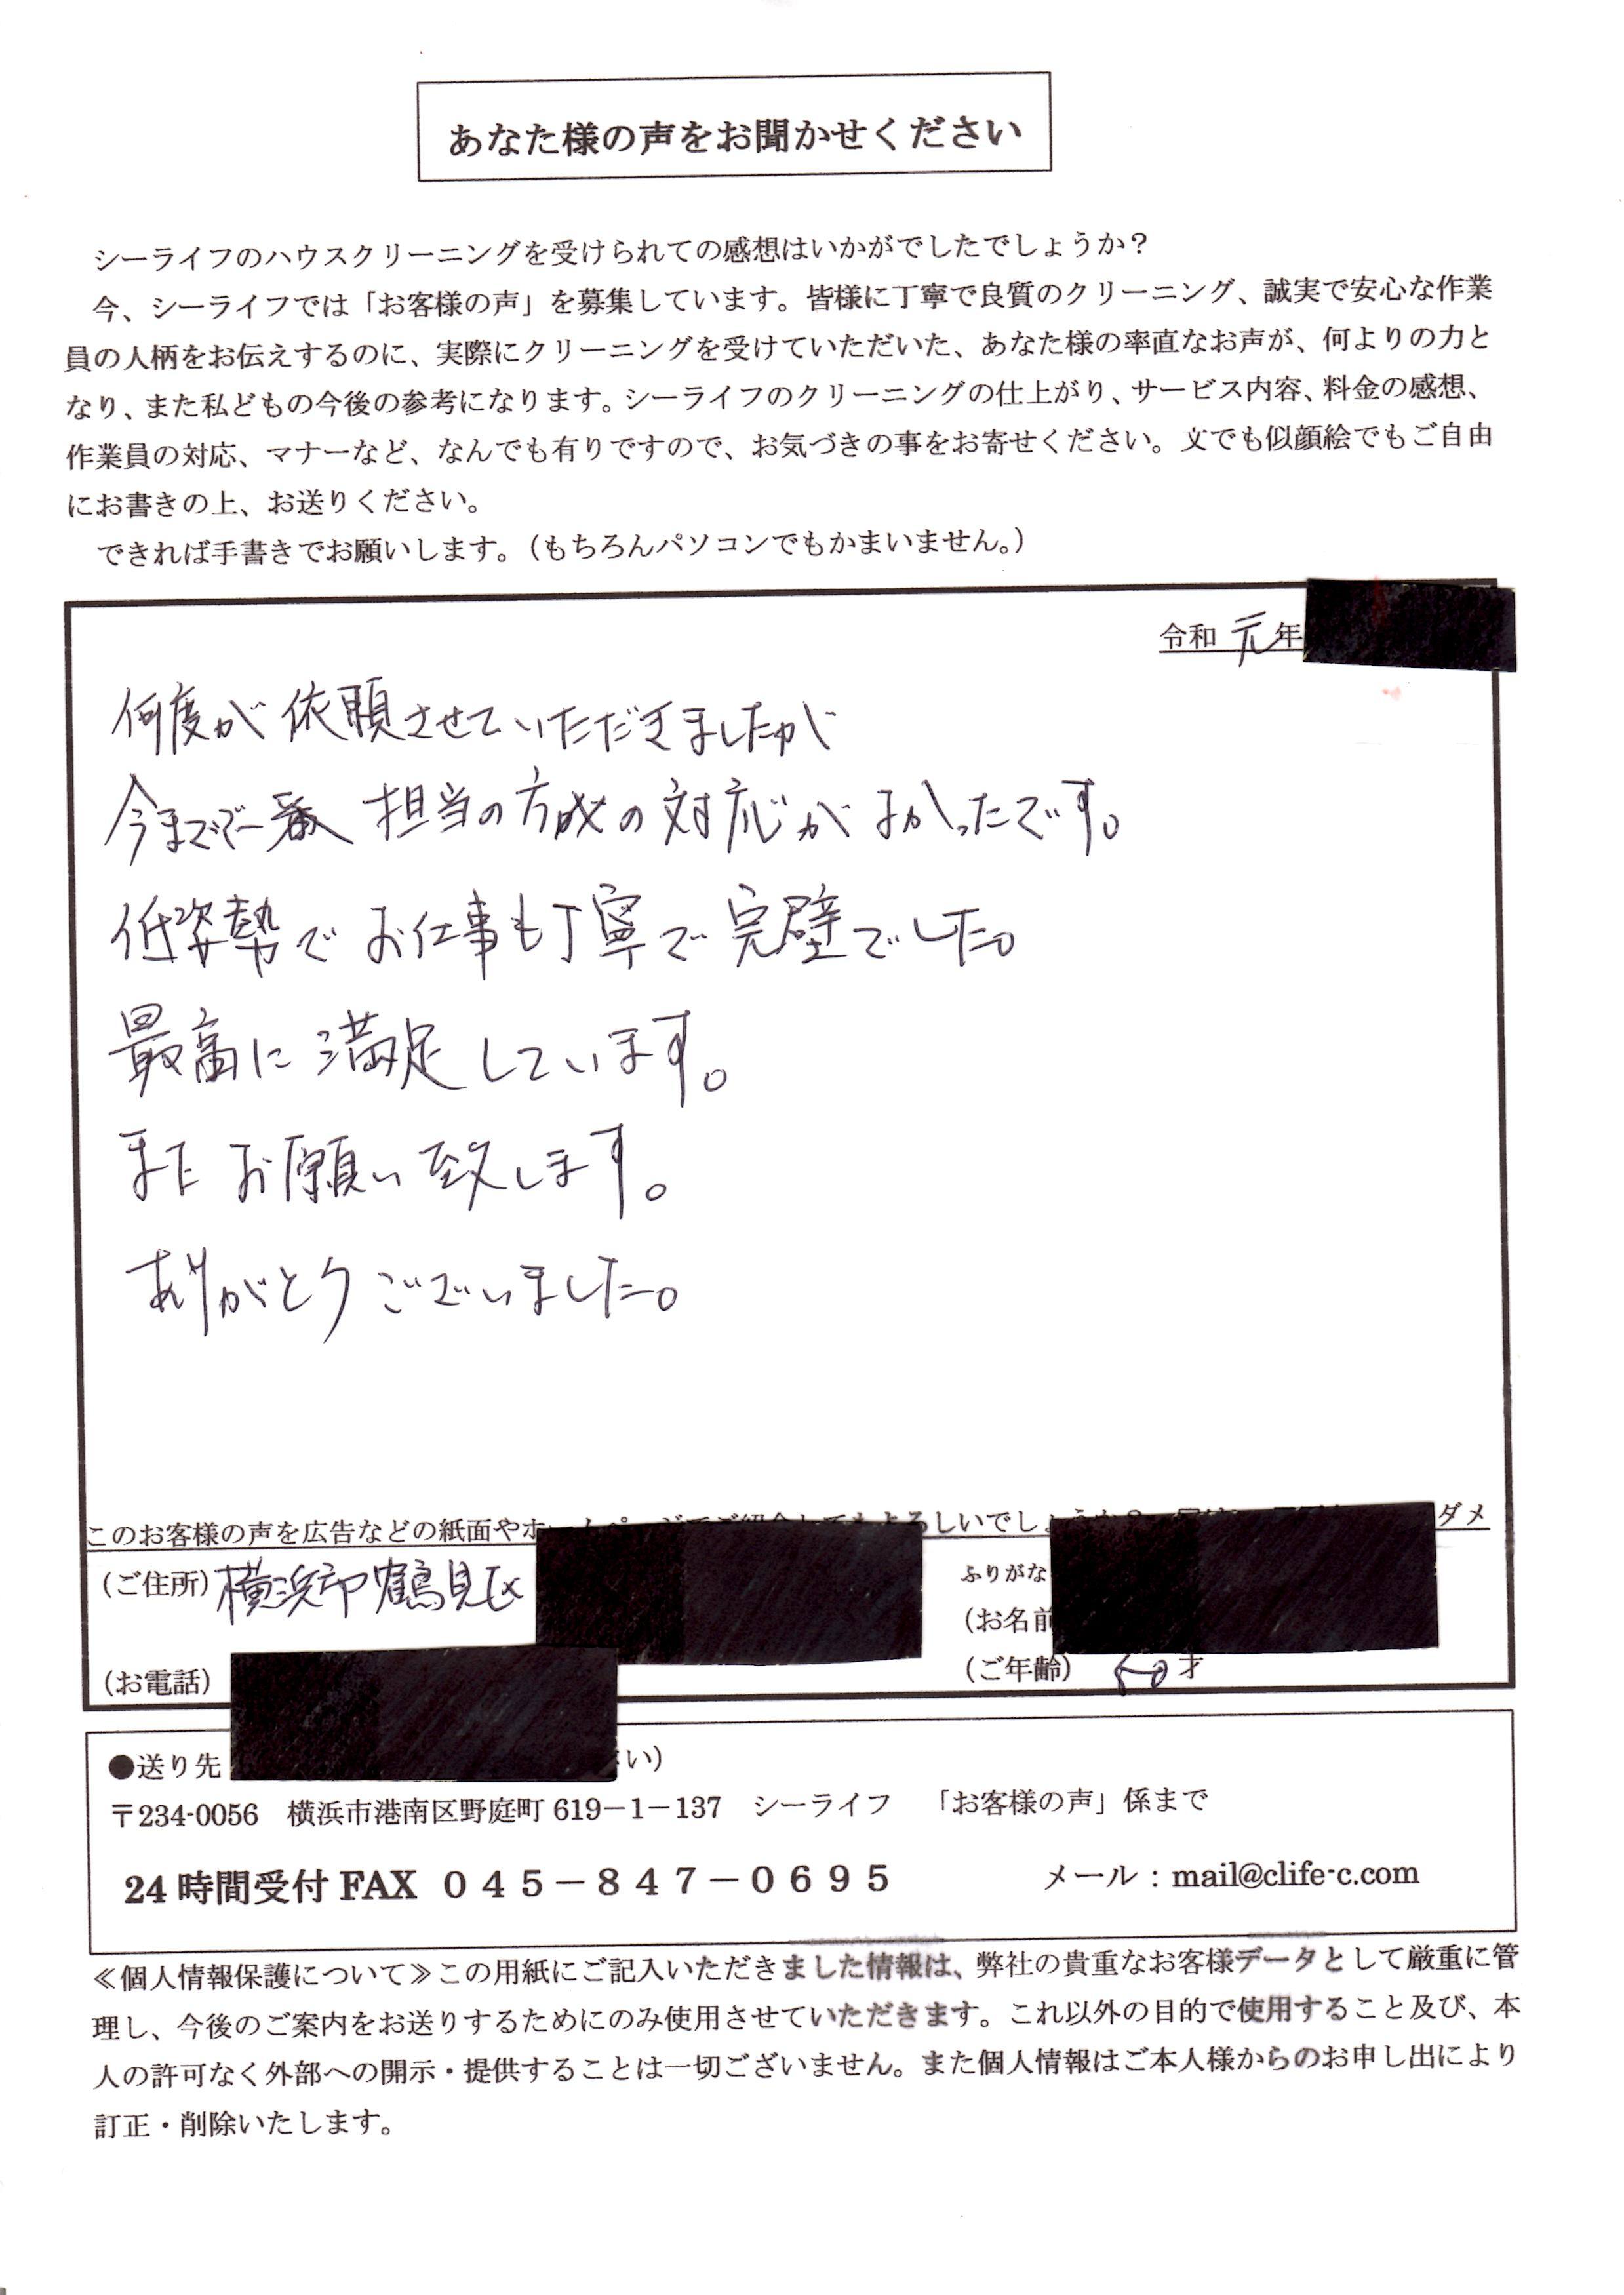 あなた様の声をお聞かせください
シーライフのハウスクリーニングを受けられての感想はいかがでしたでしょうか？
今、シーライフでは「お客様の声」を募集しています。皆様に丁寧で良質のクリーニング、誠実で安心な作業
員の人柄をお伝えするのに、実際にクリーニングを受けていただいた、あなた様の率直なお声が、何よりの力と
なり、また私どもの今後の参考になります。シーライフのクリーニングの仕上がり、サービス内容、料金の感想、
作業員の対応、マナーなど、なんでも有りですので、お気づきの事をお寄せください。文でも似顔絵でもご自由
にお書きの上、お送りください。
できれば手書きでお願いします。（もちろんパソコンでもかまいません。）
令和 元年
何度が依頼させていただきましたが
今までで一番 担当の方の対応がよかったです。
低姿勢でお仕事も丁寧で完璧でした。
最高に満足しています。
またお願い致します。
ありがとうございました。
このお客様の声を広告などの紙面やホームページでご紹介してもよろしいでしょうか？ ダメ
（ご住所）横浜市鶴見区
ふりがな
（お名前
（お電話）
（ご年齢） 才
●送り先 い）
〒234-0056 横浜市港南区野庭町 619－1－137 シーライフ 「お客様の声」係まで
24 時間受付 FAX ０４５－８４７－０６９５ メール：mail@clife-c.com
≪個人情報保護について≫この用紙にご記入いただきました情報は、弊社の貴重なお客様データとして厳重に管
理し、今後のご案内をお送りするためにのみ使用させていただきます。これ以外の目的で使用すること及び、本
人の許可なく外部への開示・提供することは一切ございません。また個人情報はご本人様からのお申し出により
訂正・削除いたします。